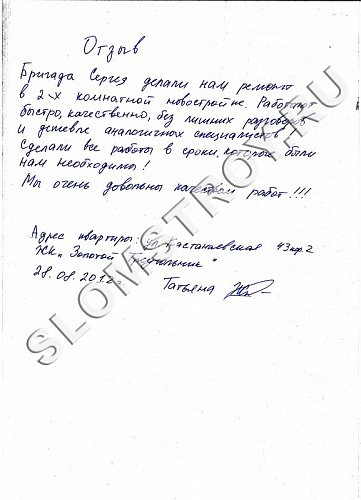 Отзыв
Бригада Сергея делали нам ремонт
в 2-х комнатной новостройке. Работают
быстро, качественно, без лишних разговоров
и дешевле аналогичных специалистов!
Сделали все работы в сроки, которые были
нам необходимы!
Мы очень довольны качеством работ!!!
Адрес квартиры: Кастанаевская 43кор.2
ЖК „Золотой треугольник“
28.08.2012г. Татьяна
SLOMSTROY.RU